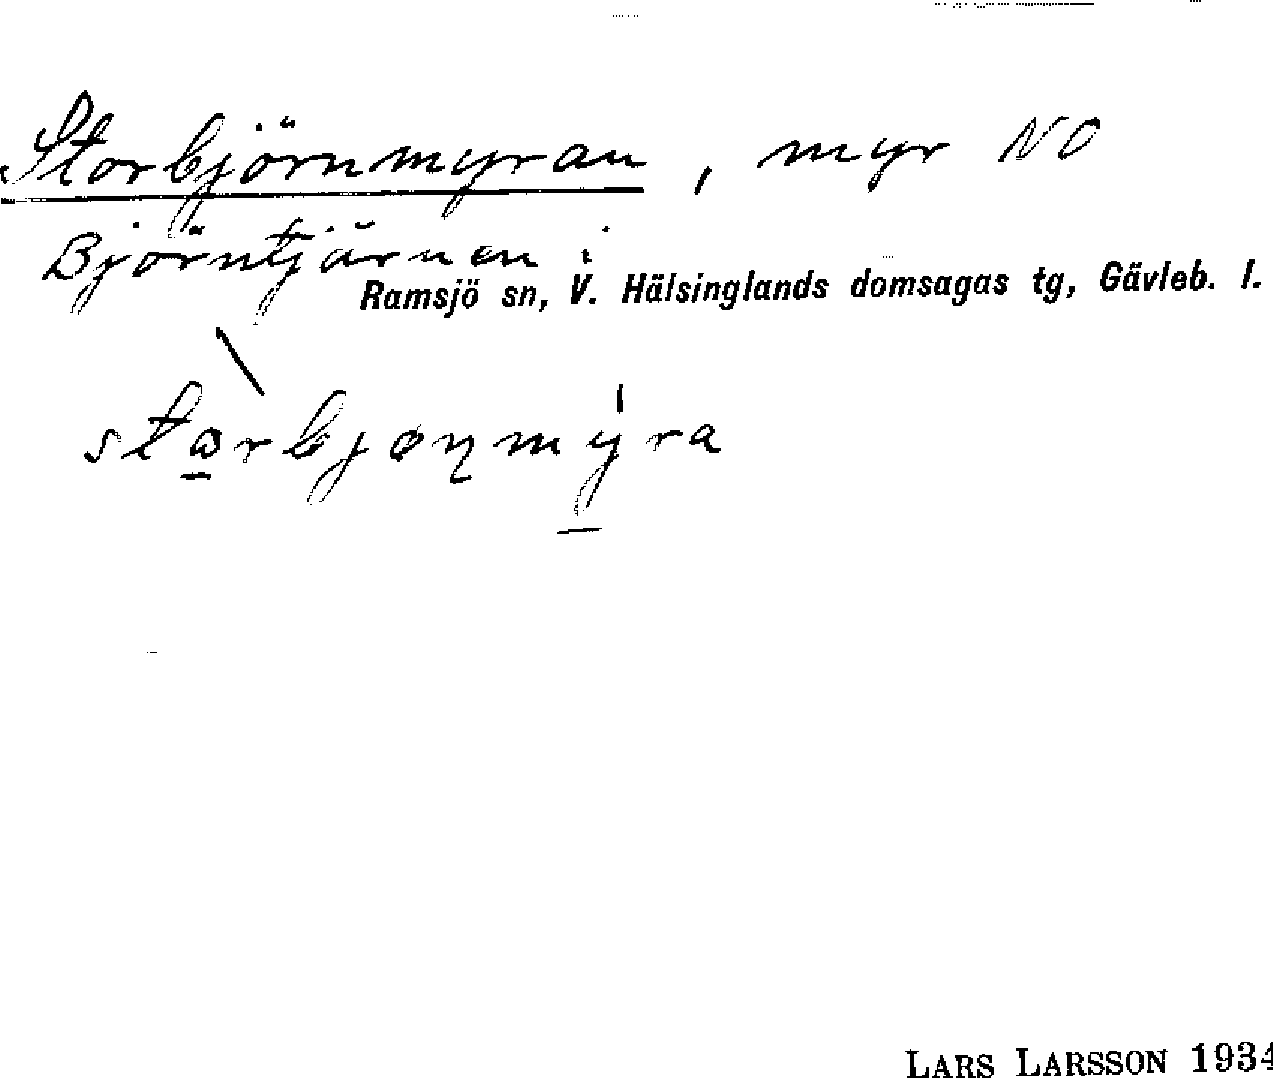 Storbjörnmyran, myr NO
Björntjärnen i
Ramsjö sn, V. Hälsinglands domsagas tg, Gävleb. l.
LARS LARSSON 1934